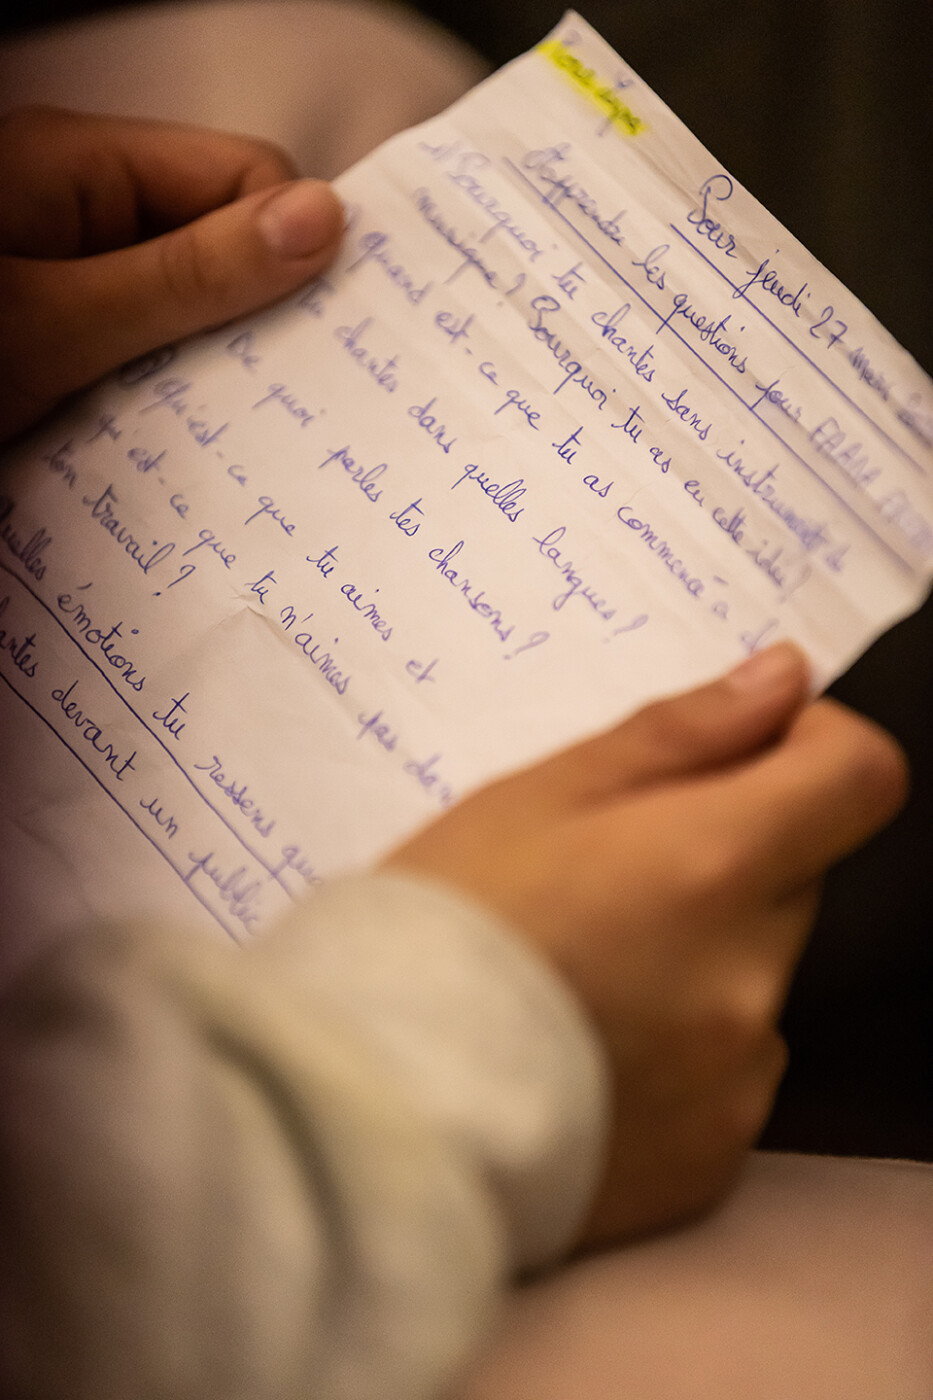 Pour jeudi 27 mars
Apprendre les questions pour
1) Pourquoi tu chantes sans instrument de
musique? Pourquoi tu as eu cette idée?
quand est-ce que tu as commencé à
tu chantes dans quelles langues?
De quoi parles tes chansons?
Qu'est-ce que tu aimes et
qu'est-ce que tu n'aimes pas dans
ton travail?
Quelles émotions tu ressens
devant un public